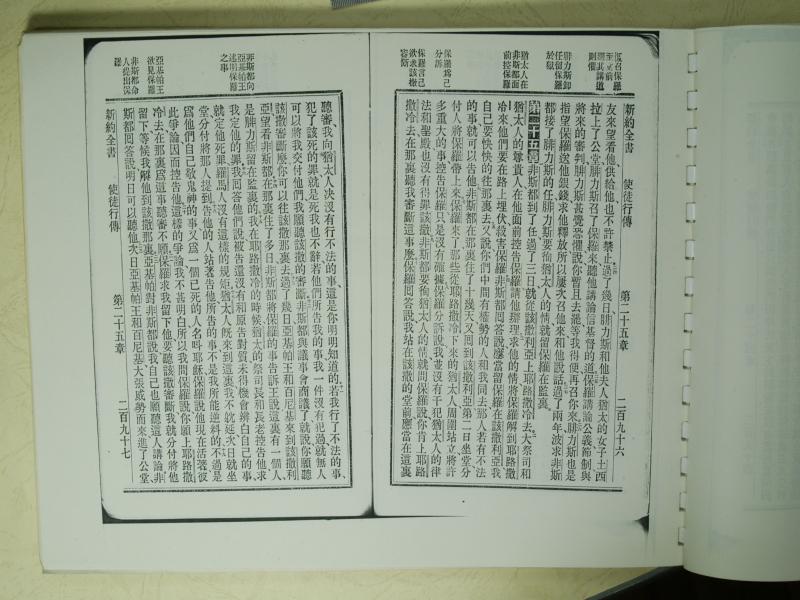 腓力斯卸任留保羅於獄
猶太人在非斯都面前控保羅
保羅為己分訴
保羅言己欲求該撒審斷
新約全書 使徒行傳 第二十五章 二百九十六
友來望看他、供給他、也不許禁止。過了幾日、腓力斯和他夫人、猶太的女子、土西
拉上了公堂、腓力斯召了保羅來、聽他講論信基督的道。保羅講論公義、節制、與
將來的審判、腓力斯甚覺恐懼、說、你暫且去罷、等我得便再召你來。腓力斯也是
指望保羅送他銀錢、求他釋放、所以屢次召他來和他說話。過了兩年、波求非斯
都接了腓力斯的任、腓力斯要徇猶太人的情、就留保羅在監裏。
第二十五章 非斯都到了任、過了三日、就從該撒利亞上耶路撒冷去。大祭司和
猶太人的尊貴人、在他面前控告保羅、請他辦理、求他的情、將保羅解到耶路撒
冷來、他們要在路上埋伏殺害保羅。非斯都囘答說、應當留保羅在該撒利亞、我
自己要快快的往那裏去。又說、你們中間有權勢的人、和我同去、那人若有不法
的事、就可以告他。非斯都在那裏住了十幾天、又囘到該撒利亞、第二日坐堂、分
付人將保羅帶上來。保羅來了、那些從耶路撒冷下來的猶太人、周圍站立、將許
多重大的事控告保羅、只是沒有確據。保羅分訴說、我並沒有干犯猶太人的律
法和聖殿、也沒有得罪該撒。非斯都要徇猶太人的情、就問保羅說、你肯上耶路
撒冷去、在那裏聽我審斷這事麼。保羅囘答說、我站在該撒的堂前、應當在這裏
非斯都向亞基帕王述明保羅之事
亞基帕王欲見保羅
非斯都命人提出保羅
聽審。我向猶太人決沒有行不法的事、這是你明明知道的。若我行了不法的事、
犯了該死的罪、就是死我也不辭。若他們所告我的事、我一件沒有犯過、就無人
可以將我交付他們、我願聽該撒的審斷。非斯都與議事會商議了、就說、你願聽
該撒審斷麼、你可以往該撒那裏去。過了幾日、亞基帕王和百尼基來到該撒利
亞、望看非斯都。在那裏住了多日、非斯都將保羅的事告訴王說、這裏有一個人、
是腓力斯留在監裏的。我在耶路撒冷的時候、猶太的祭司長和長老控告他、求
我定他的罪。我囘答他們說、被告還沒有和原告對質、未得機會辨白自己的事、
就定他死罪、羅馬人沒有這樣的規矩。猶太人旣來到這裏、我不就延、次日就坐
堂、分付將那人提到。告他的人站著告他、所告的事、不是我所能逆料的。不過是
為他們自己敬鬼神的事、又為一個已死的人、名叫耶穌、保羅說他現在活著。彼
此爭論、因而控告他。這樣的爭論、我不甚明白、所以我問保羅說、你願上耶路撒
冷去、在那裏爲這事聽審不願。保羅求我留下他、要聽該撒審斷、我就分付將他
留下、等候我解他到該撒那裏。亞基帕對非斯都說、我自己也願聽這人講論。非
斯都囘答說、明日可以聽他。次日亞基帕王和百尼基大張威勢而來、進了公堂、
新約全書 使徒行傳 第二十五章 二百九十七